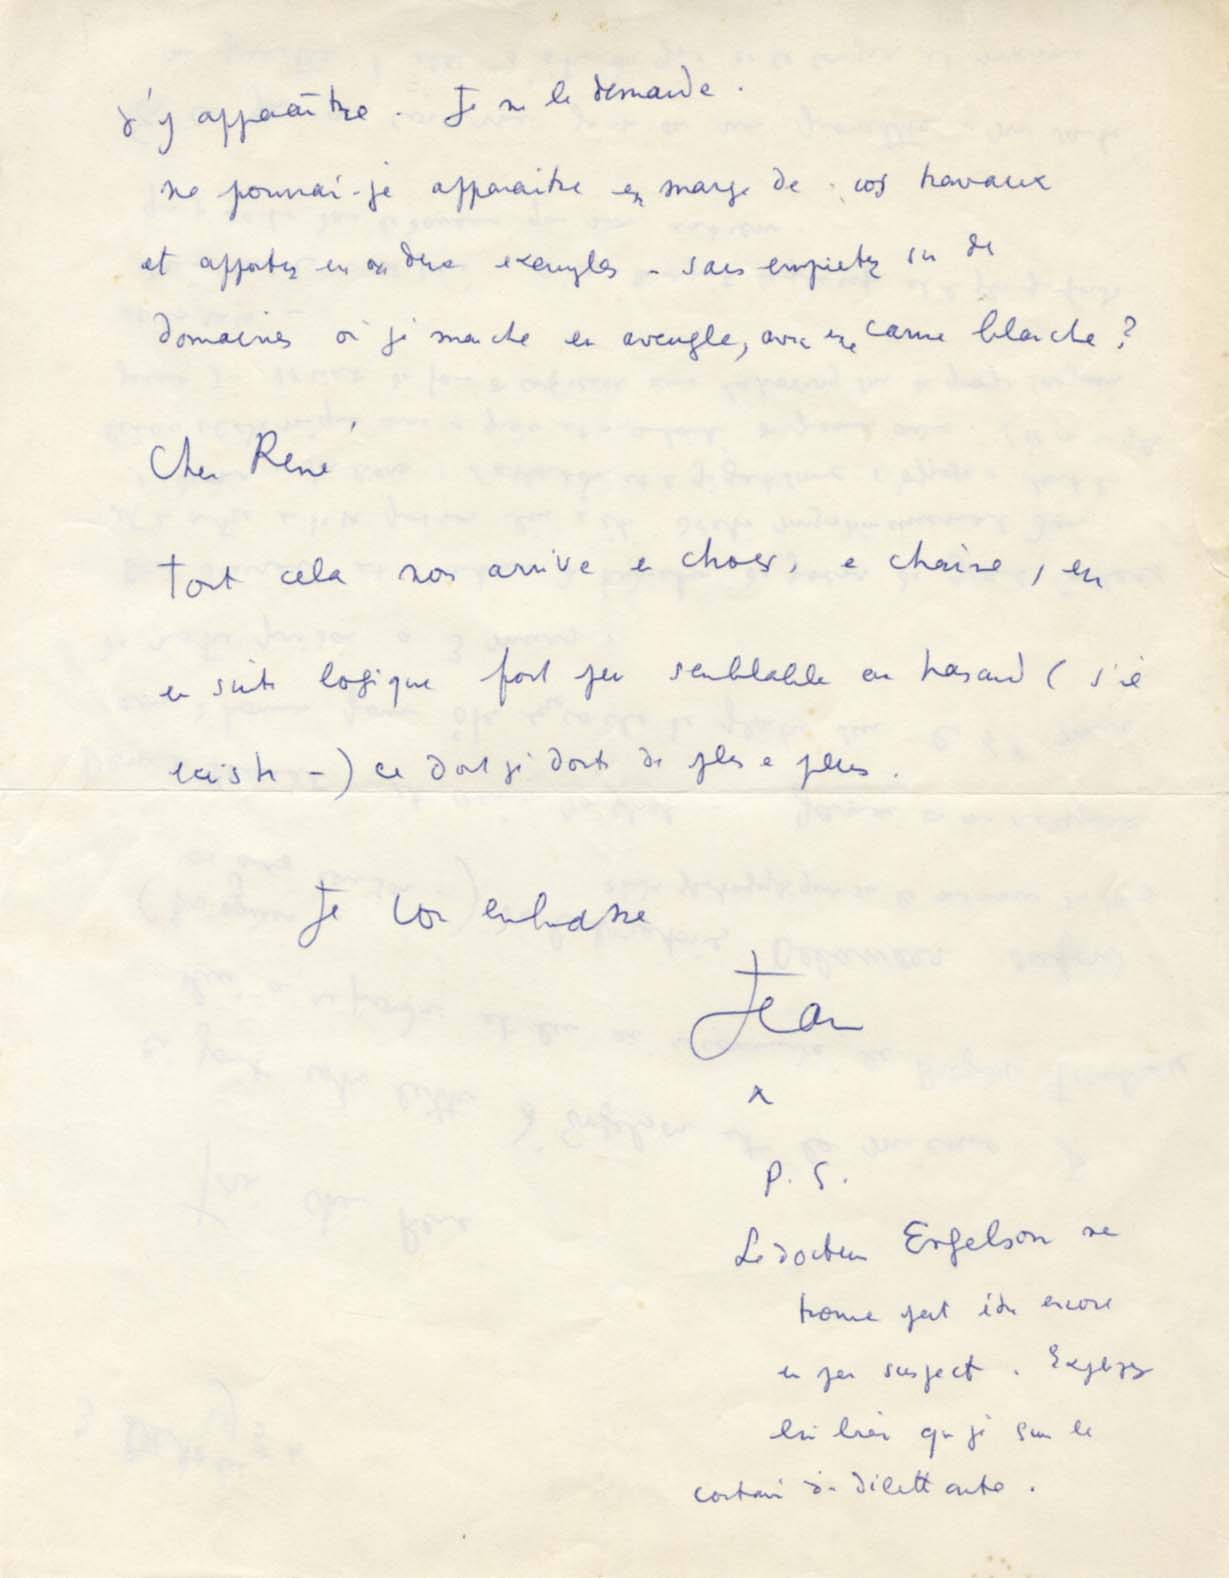 d'y apparaître. Je me le demande.
ne pourrai-je apparaitre en marge de vos travaux
et apporter un ou deux exemples - sans empieter sur des
domaines où je marche en aveugle, avec une canne blanche?
Cher René
tout cela nous arrive en choes, en chaine, en
en suite logique fort peu semblable au hasard (s'il
existe -) ce dont je doute de plus en plus.
Je vous embrasse
Jean
P. S.
Le docteur Engelson me
trouve peut être encore
un peu suspect. Expliquez
lui bien que je suis le
contraire d'un dilettante.